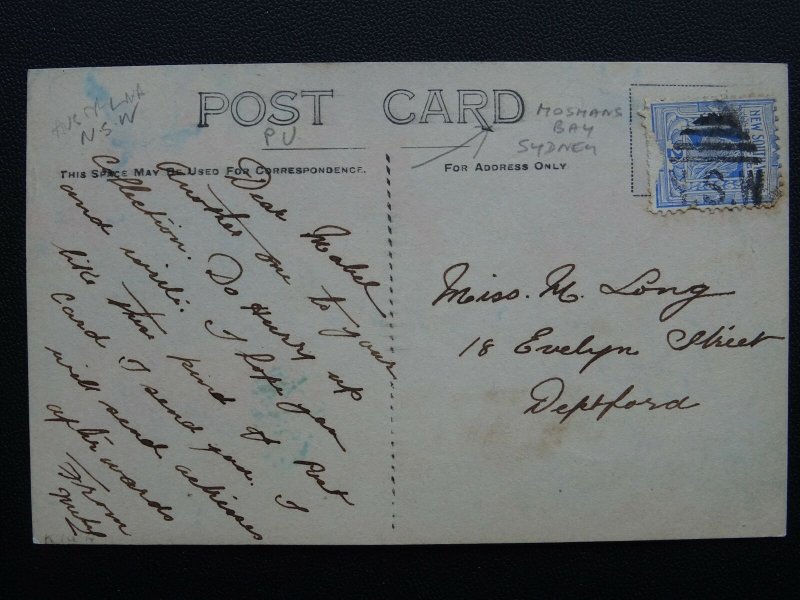 AUSTRALIA
N.S.W
POST CARD
PU
MOSMANS
BAY
SYDNEY
NEW SOU
THIS SPACE MAY BE USED FOR CORRESPONDENCE.
FOR ADDRESS ONLY
Dear Mabel
Another one to your
collection. Do Hurry up
and write. I hope you
like these kind of Post
Card I send you. I
will send actresses
afterwards
From
Miss. M. Long
18 Evelyn Street
Deptford